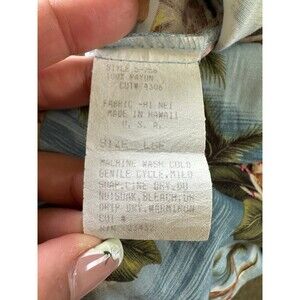 STYLE
100% RAYON
CUT# 4306
FABRIC -HI NEI
MADE IN HAWAII
U. S. A.
SIZE LGE
MACHINE WASH COLD
GENTLE CYCLE, MILD
SOAP, LINE DRY, DO
NOT USE BLEACH, OR
DRIP DRY, WARM IRON
CUT #